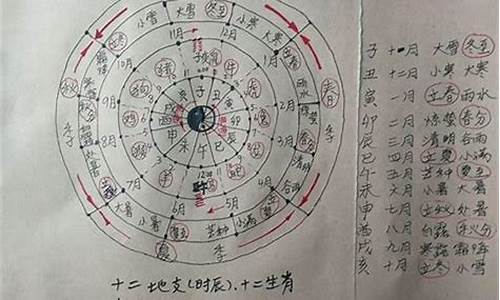 小雪 大雪 冬至 小寒
大寒
11月 12月
10月 1月
立春
雨水
立冬
9月 2月
秋 春
季 月
8月 3月
惊蛰
春分
秋分
处暑
清明
谷雨
7月 4月
6月 5月
大暑 小暑 夏至 芒种 小满
夏 季
子 丑 寅 卯 辰 巳 午 未 申 酉 戌 亥
鸡
狗
牛
羊
子 十一月 大雪 冬至
丑 十二月 小寒 大寒
寅 一月 立春 雨水
卯 二月 惊蛰 春分
辰 三月 清明 谷雨
巳 四月 立夏 小满
午 五月 芒种 夏至
未 六月 小暑 大暑
申 七月 立秋 处暑
酉 八月 白露 秋分
戌 九月 寒露 霜降
亥 十月 立冬 小雪
十二地支(时辰)、十二生肖